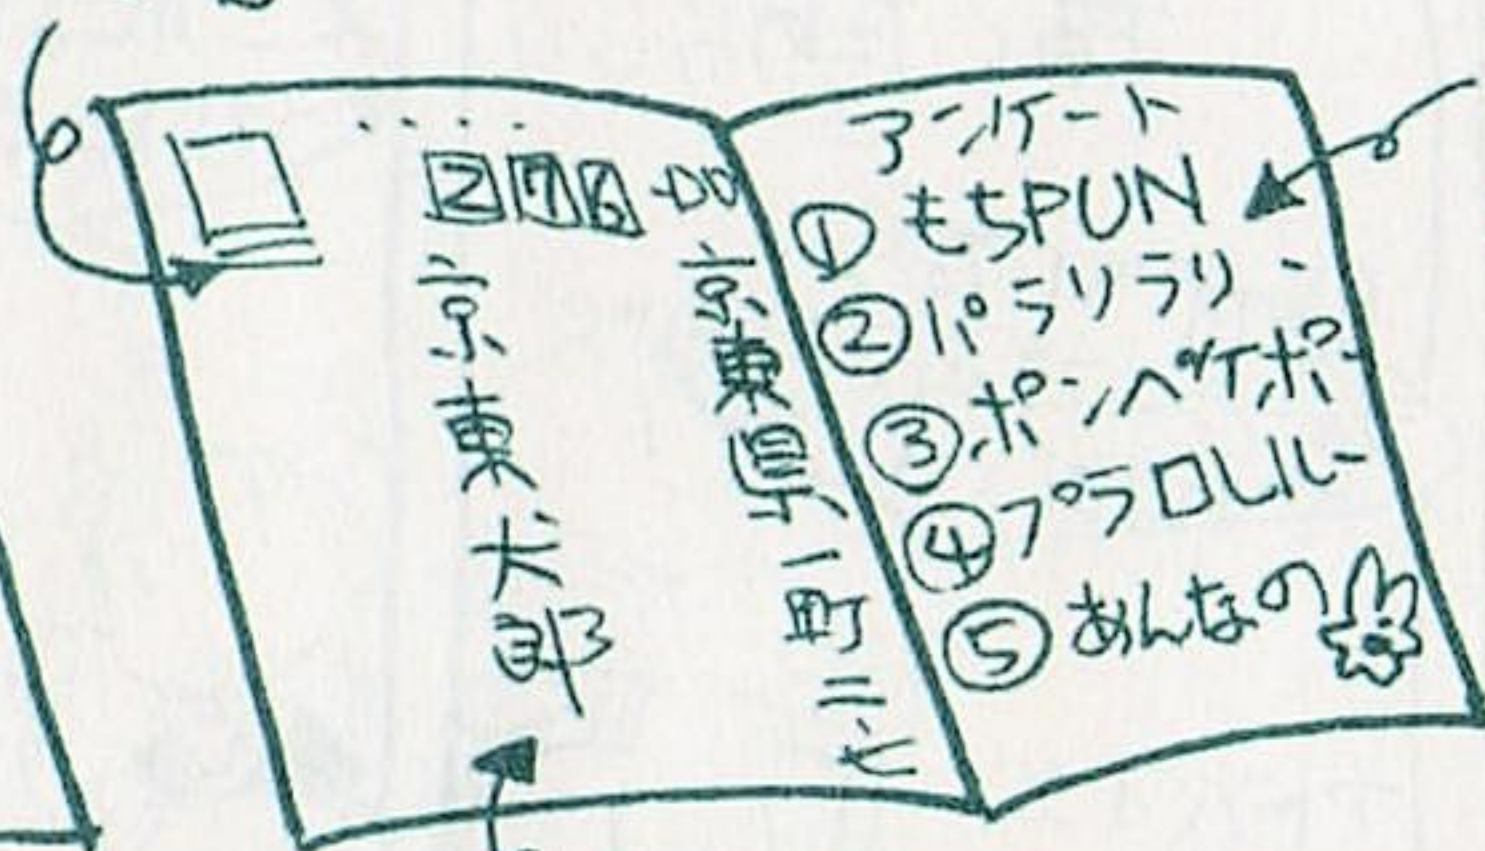 276-00
京東県一町二、七
京東犬郎
アンケート
① もちPUN
② パラリラリ
③ ポンペケポ
④ プラロレルー
⑤ あんなの